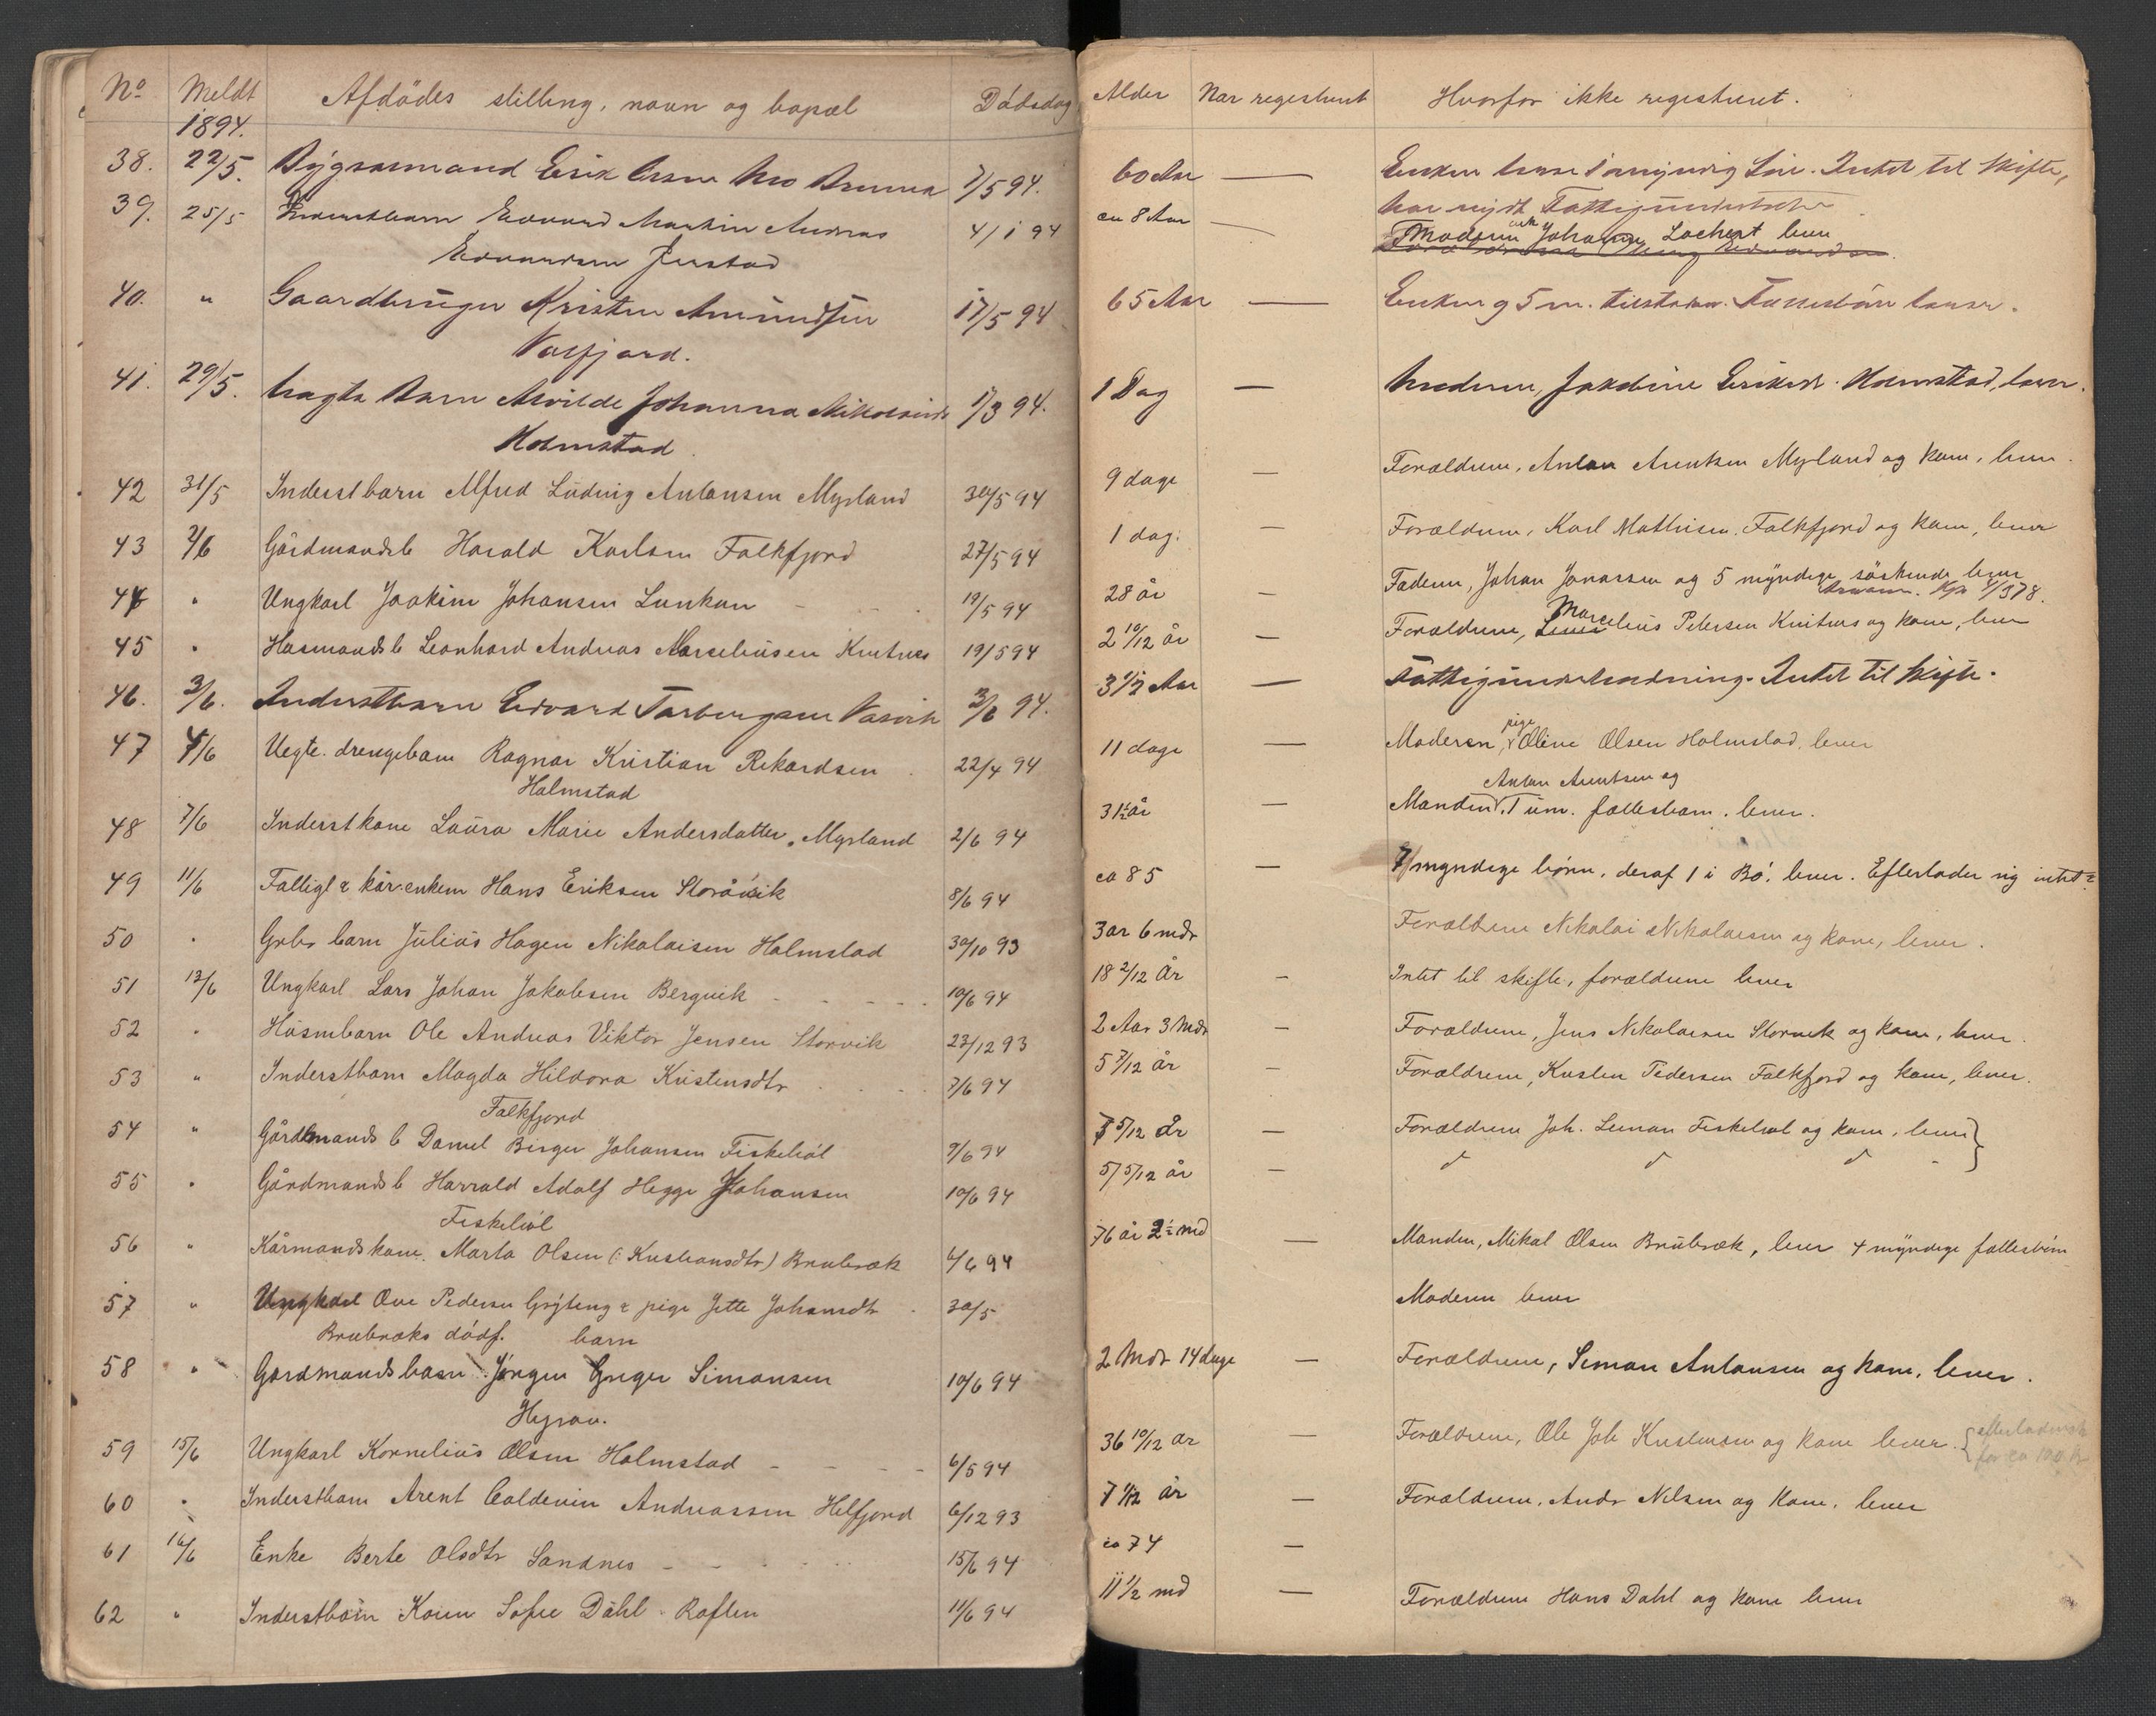 No Meldt 1894. Afdödes stilling, navn og bopæl Dødsdag
38. 22/5. Erik 7/5 94.
39. 25/5 Inderstbarn Edvard Martin Andreas 4/1 94
Edvardsen
40. " Gaardbruger Kristen Amundsen 17/5 94
Valfjord.
41. 29/5. Uægte Barn Alvilde Johanna 1/3 94.
Holmstad
42 31/5 Inderstbarn Alfred Ludvig Antonsen Myrland 30/5 94
43 2/6 Gårdmandsb Harald Karlsen Falkfjord 27/5 94
44 " Ungkarl Joakim Johansen Lunkan 19/5 94
45 " Husmandsb Leonhard Andreas Marselinsen 19/5 94
46. 3/6. Inderstbarn Edvard Torbergsen Vasvik 3/6 94.
47 4/6 Uegte drengebarn Ragnar Kristian Rikardsen 22/4 94
Holmstad
48 7/6 Inderstkone Laura Marie Andersdatter, Myrland 2/6 94
49 11/6 Fattigl & kårenkem Hans Eriksen 8/6 94
50 " Grbr barn Julius Hagen Nikolaisen Holmstad 30/10 93
51 13/6 Ungkarl Lars Johan Jakobsen Bergvik 10/6 94
52 " Husmbarn Ole Andreas Viktor Jensen Storvik 27/12 93
53 " Inderstbarn Magda Hildora Kristensdtr 7/6 94
Falkfjord
54 " Gårdmands b Daniel Birger Johansen Fiskeböl 9/6 94
55 " Gårdmands b Harrald Adolf Hegge Johansen 10/6 94
Fiskeböl
56 " Kårmands kone. Marta Olsen (: Kristiansdtr) Brubræk 6/6 94
57 " Ungkarl Ove Pedersen Gryteng & pige Jette Johansdtr 30/5
Brubræks dödf. barn
58 " Gardmandsbarn Jörgen Greger Simonsen 10/6 94
59 15/6 Ungkarl Kornelius Olsen Holmstad 6/5 94
60 " Inderstbarn Arent Baldevin Andreassen Helfjord 6/12 93
61 16/6 Enke Berte Olsdtr Sandnes 15/6 94
62 " Inderstbarn Karen Sofie Dahl Raften 11/6 94
Alder Nar registreret Hvorfor ikke registreret.
60 Aar — Enken Intet til Skifte,
har nydt Fattigunderstøttelse
ca 8 Aar — Moderen enk Johanna Lochert lever
65 Aar — Enken og 5 m. Fællesbörn lever.
1 Dag — Moderen, Jakobine Eriksd. Holmstad, lever.
9 dage — Forældrene, Anton Arentsen Myrland og kone, lever.
1 dag. — Forældrene, Karl Mathisen Falkfjord og kone, lever
28 år — Faderen, Johan Jonassen og 5 myndige söskende lever
2 10/12 år — Forældrene, Marcelius Petersen og kone, lever
3 1/2 Aar — Fattigunderstøtning. Intet til Skifte.
11 dage — Moderen, pige Oline Olsen Holmstad, lever
Anton Arentsen og
31½ år — Manden, 1 um. fællesbarn. lever.
ca 85 — 7 myndige börn, deraf 1 i Bö. lever. Efterlader sig intet
3 ar 6 mdr Forældrene Nikolai Nikolaisen og kone, lever.
18 2/12 År — Intet til skifte, forældrene lever
2 Aar 3 Mdr — Forældrene, Jens Nikolaisen Storvik og kone, lever.
5 7/12 år — Forældrene, Kristen Pedersen Falkfjord og kone, lever.
7 5/12 år — Forældrene Joh. Simon Fiskeböl og kone, lever
5 5/12 år —
76 år 2½ md — Manden, Mikal Olsen Brubræk, lever 4 myndige fællesbörn
Moderen lever
2 Mdr 14 dage — Forældrene, Simon Antonsen og kone, lever.
36 10/12 ar — Forældrene, Ole Joh Kristensen og kone lever. {efterladensk
for ca 100 kr
7 1/12 år — Forældrene, Andr Nilsen og kone, lever
ca 74 —
11 1/2 md — Forældrene Hans Dahl og kone lever